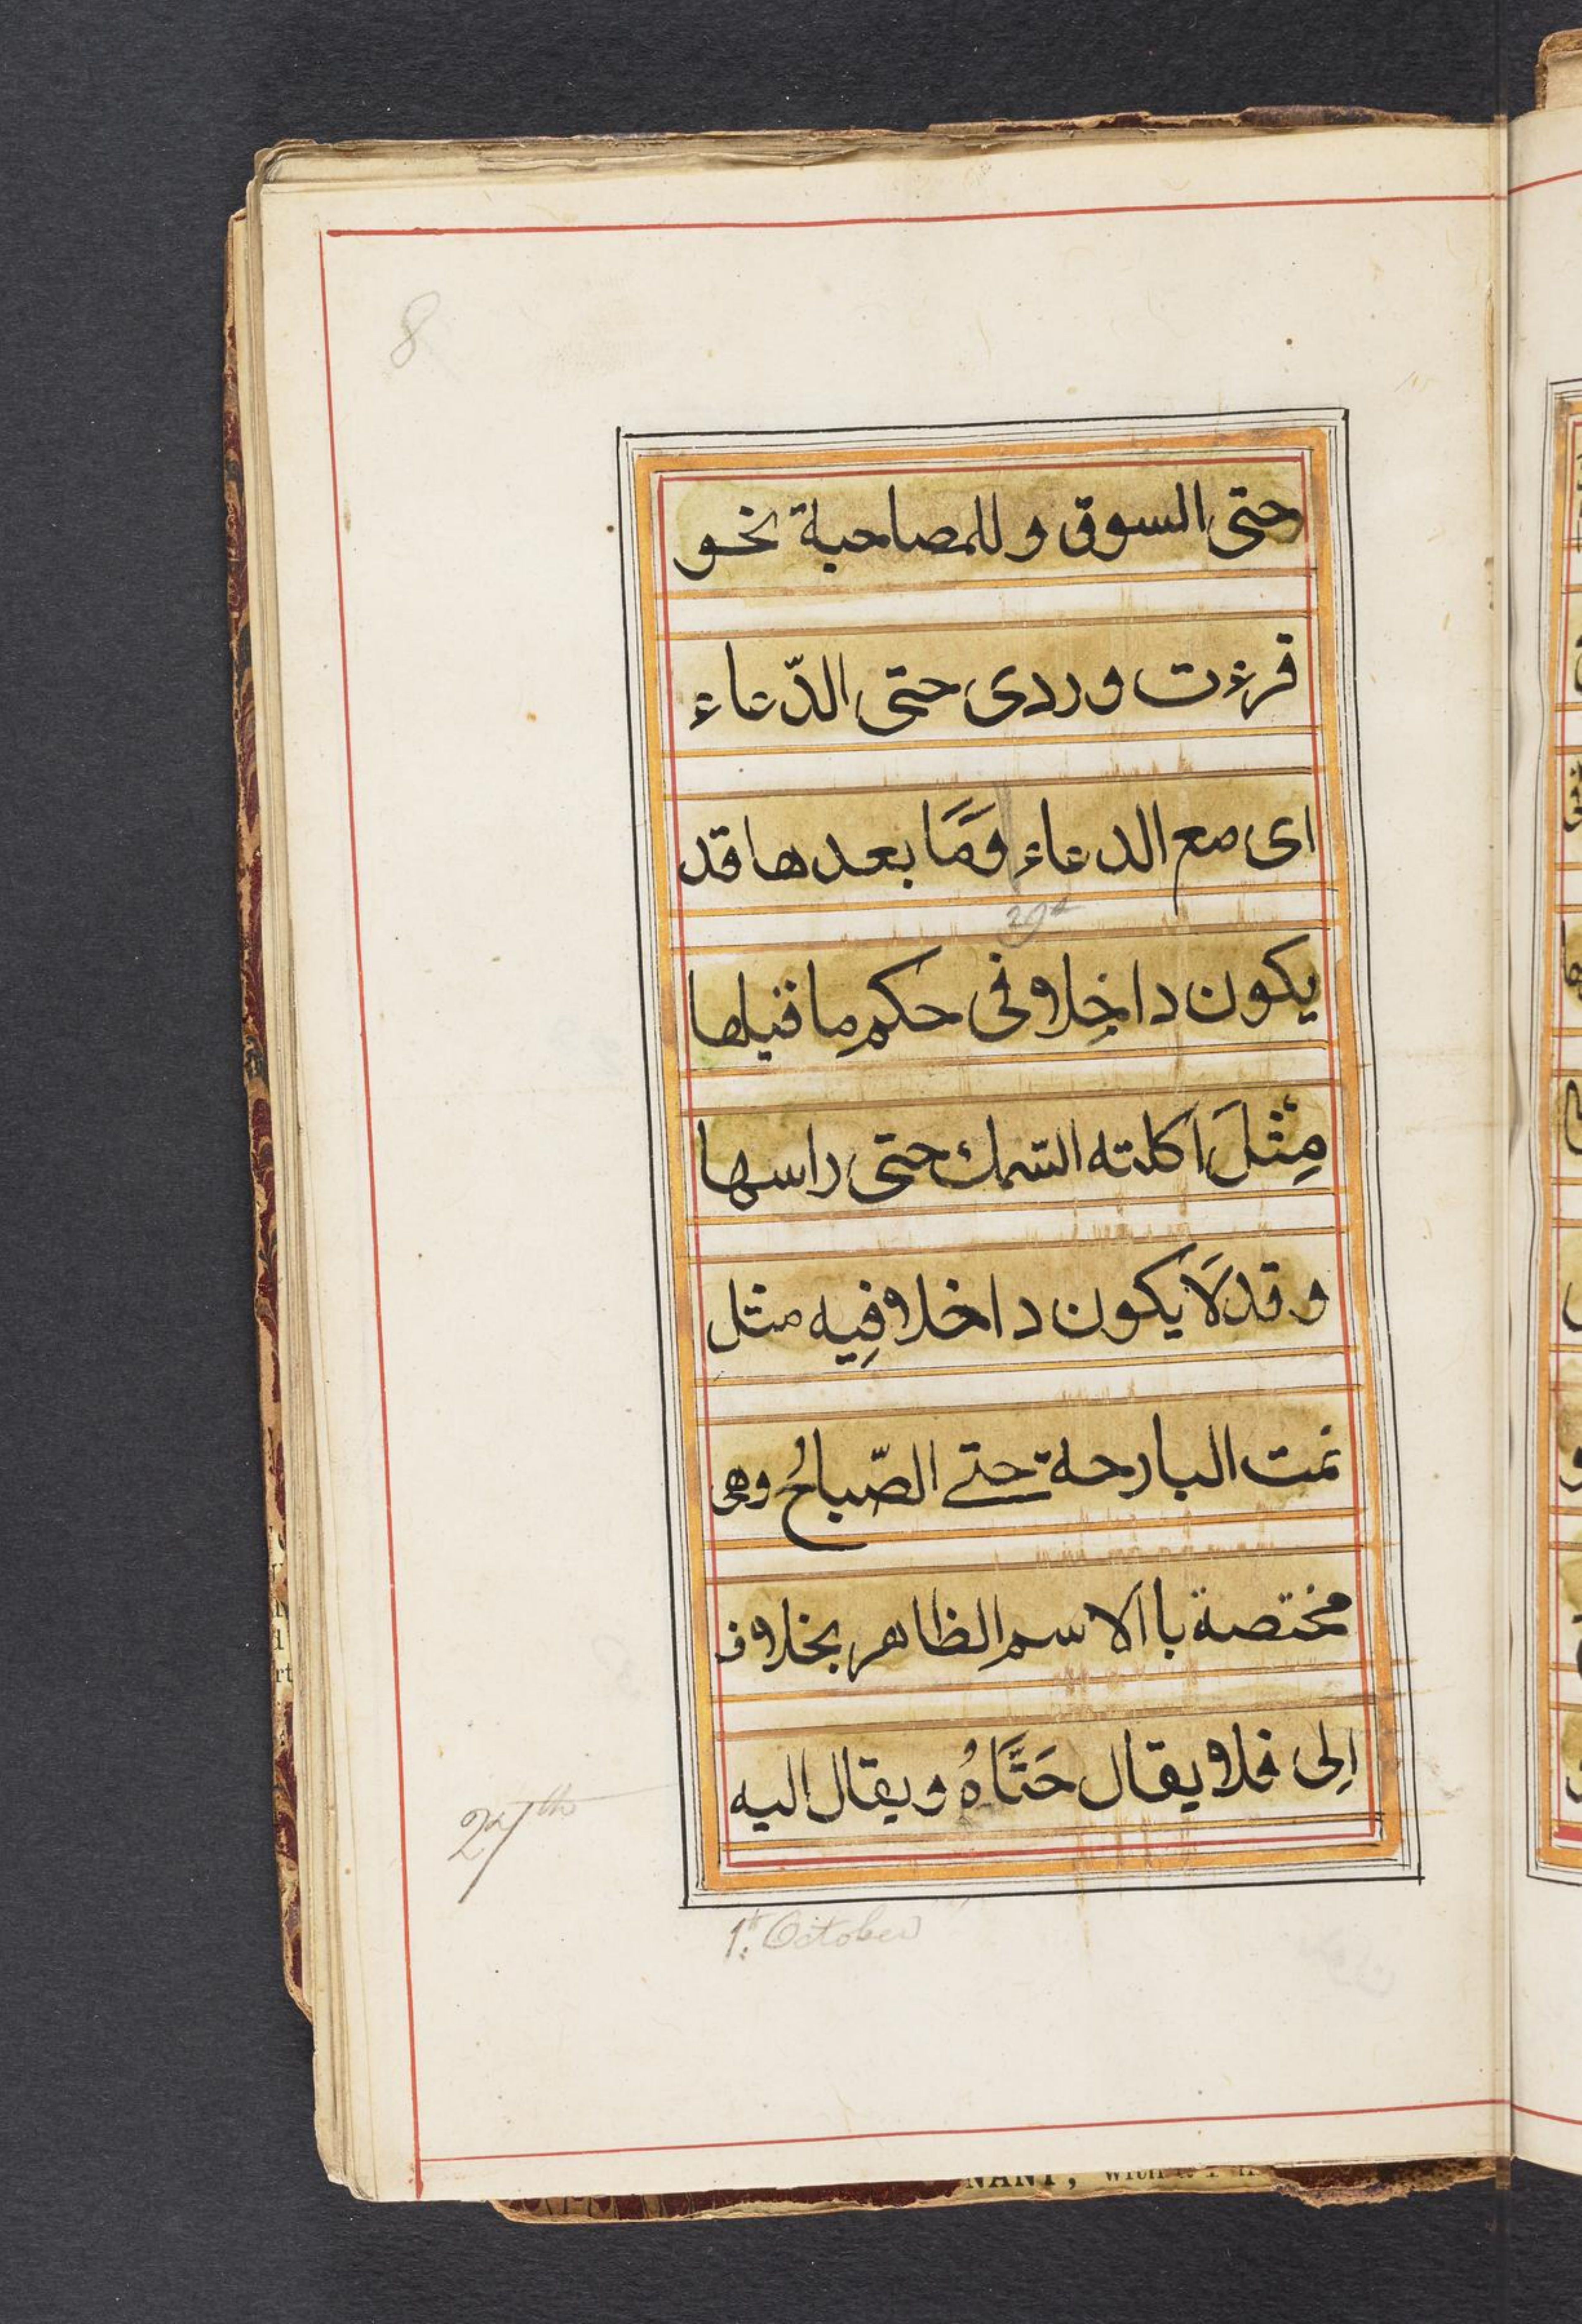 8
حتى السوق و للمصاحبة نحو
قرءت وردى حتى الدّعاء
اى مع الدعاء وَمَا بعدها قد
يكون داخِلا فى حكم ما قبلها
مِثْلَ اكلته السّمك حتى راسها
و قد لَا يكون داخلا فِيه مثل
نمت البارحة حتے الصّباحُ وهى
مختصة باالاسم الظاهر بخلاف
اِلى فلا يقال حَتَّاهُ و يقال اليه
27th
1st. October
NANT, with